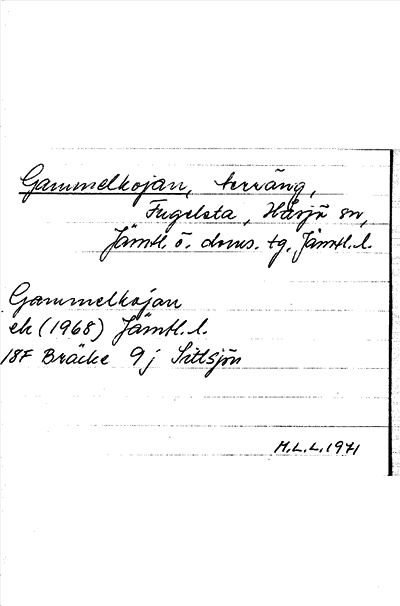 Gammelkojan, terräng,
Fugelsta, Håsjö sn,
Jämtl. ö. doms. tg. Jämtl. l.
Gammelkojan
ek (1968) Jämtl. l.
18F Bräcke 9j Sittsjön
M.L.L. 1971